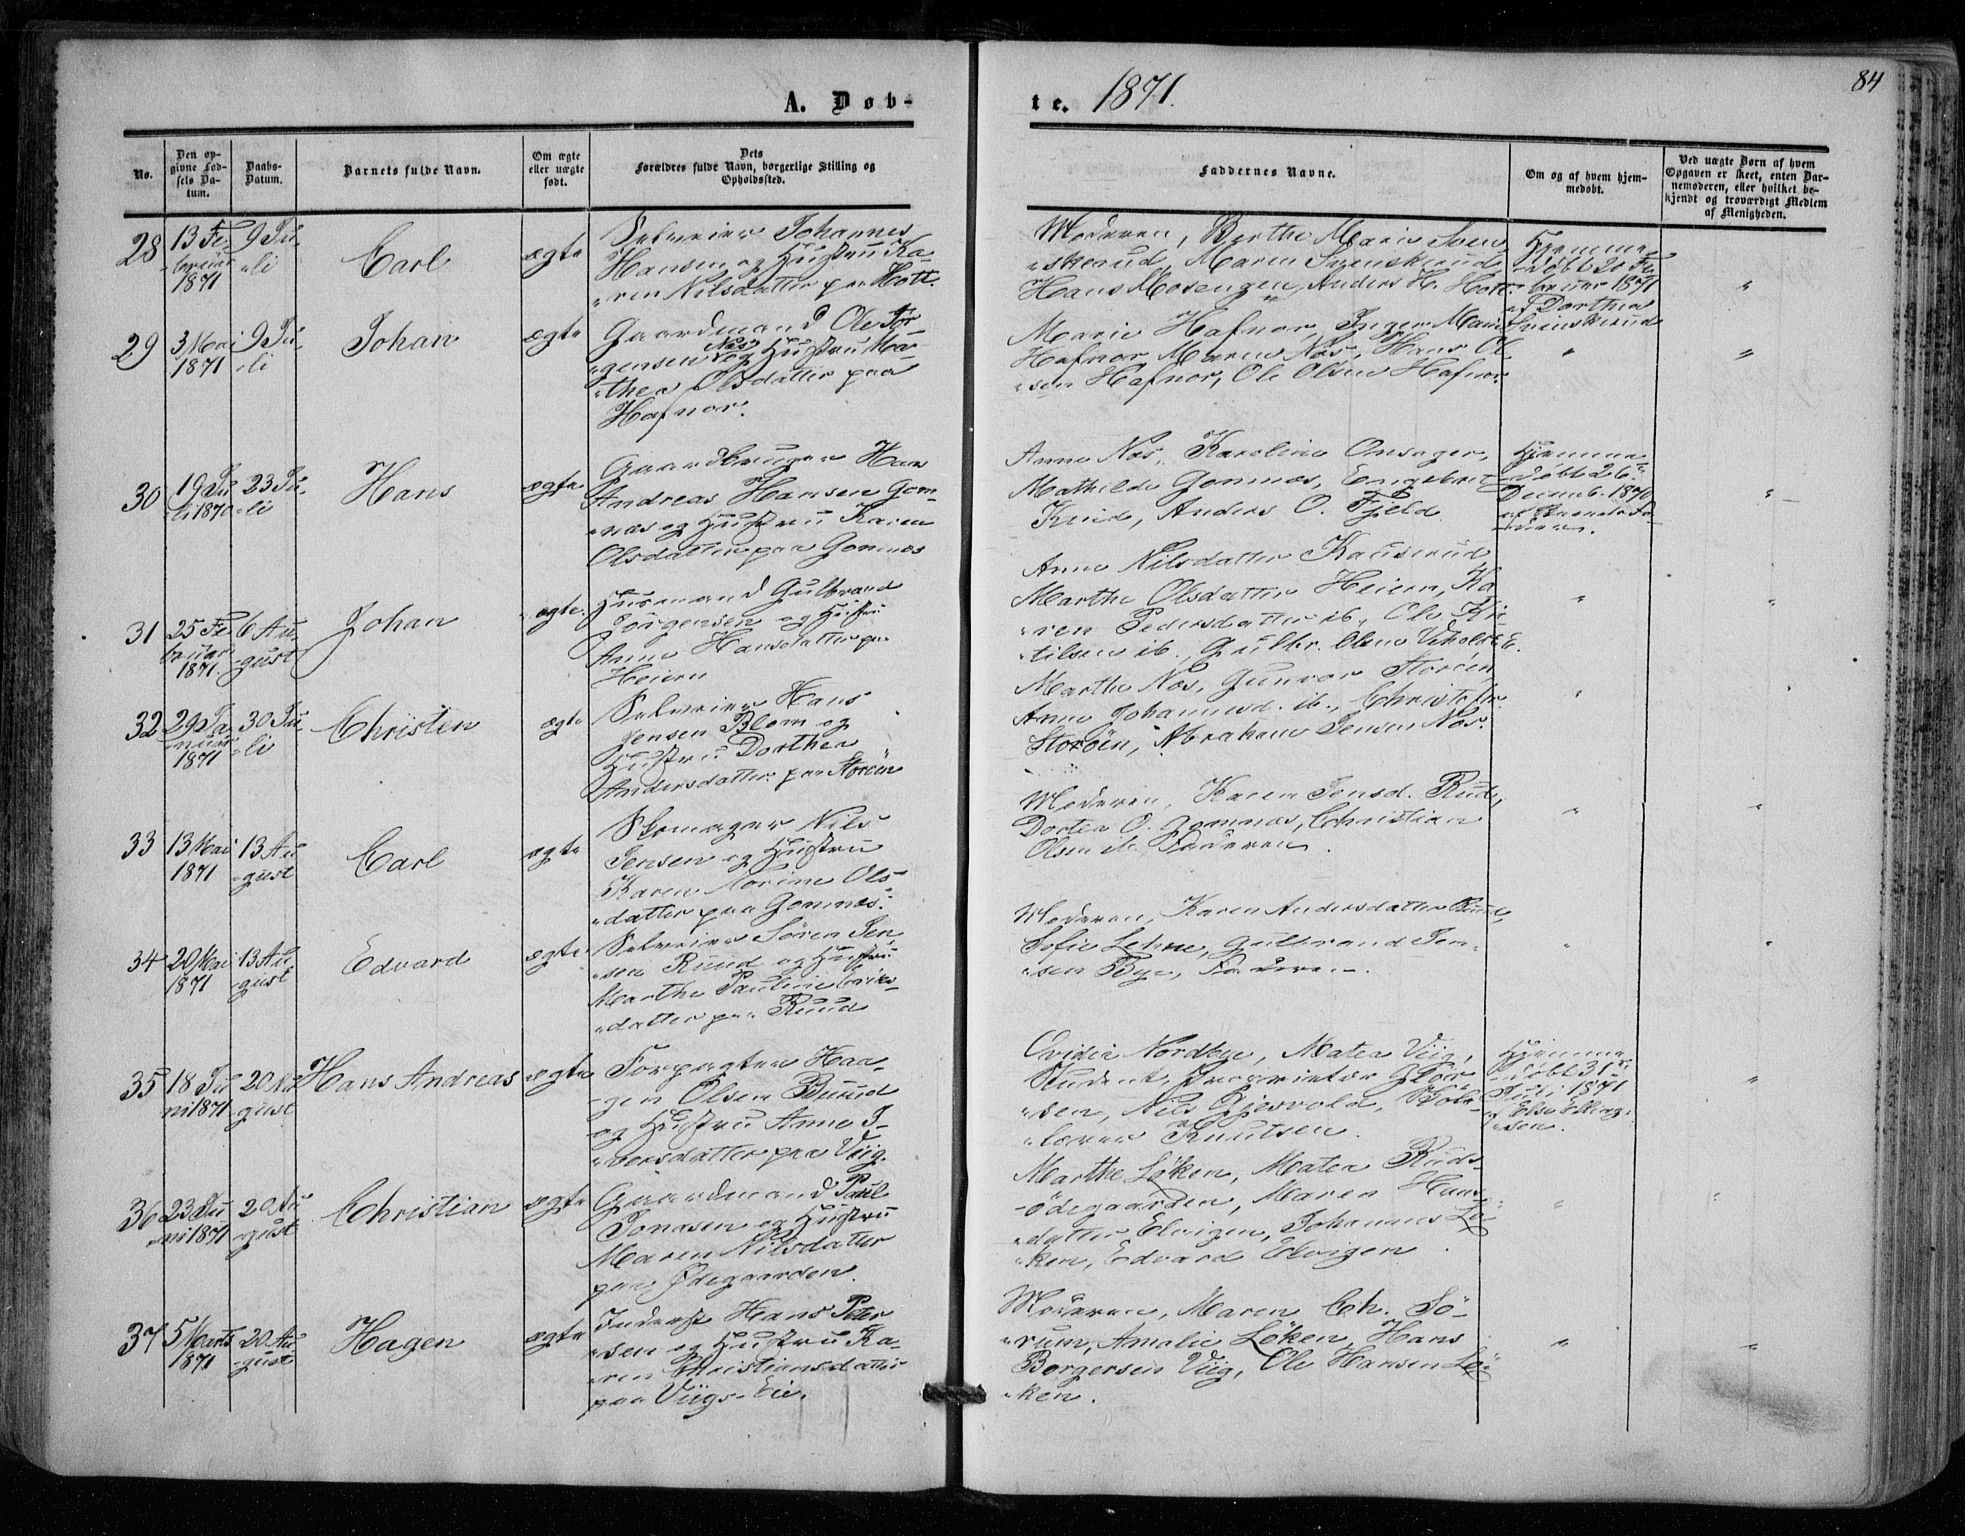 A. Døb-
te. 1871.
84
No.
Den op-
givne Fød-
sels Da-
tum.
Daabs-
Datum.
Barnets fulde Navn.
Om ægte
eller uægte
født.
Dets
Forældres fulde Navn, borgerlige Stilling og
Opholdssted.
Faddernes Navne.
Om og af hvem hjem-
medøbt.
Ved uægte Børn af hvem
Opgaven er skeet, enten Bar-
nemoderen, eller hvilket be-
kjendt og troværdigt Medlem
af Menigheden.
28
13 Fe-
bruar
1871
9 Ju-
li
Carl
ægte
Selveier Johannes
Hansen og Hustru Ka-
ren Nilsdatter paa Hott.
Moderen, Berthe Marie Sven
skerud, Maren Svenskerud
Hans Mosengen, Anders H. Hott.
Hjemme
døbt 20 Fe
bruar 1871
af Dorthea
Svenskerud
"
29
3 Mai
1871
9 Ju-
li
Johan
ægte
Gaardmand Ole Jør-
gensen Næs og Hustru Mar-
thea Olsdatter paa
Hafnor.
Marie Hafnor, Inger Marie
Hafnor, Maren Næs, Hans Ol
sen Hafnor, Ole Olsen Hafnor
"
"
30
19 Ju
li 1870
23 Ju-
li
Hans
ægte
Gaardbruger Hans
Andreas Hansen Gom-
næs og Hustru Karen
Olsdatter paa Gomnæs
Anne Næs, Karoline Onsager,
Mathilde Gomnæs, Engebret
Knud, Anders O. Fjeld.
Hjemme
døbt 26
Decemb. 1870
"
31
25 Fe
bruar
1871.
6 Au-
gust
Johan
ægte.
Husmand Gulbrand
Jørgensen og Hustru
Anne Hansdatter paa
Heiern
Anne Nilsdatter
Marthe Olsdatter Heiern, Ka
ren Pedersdatter ib., Ole Kje
tilsen ib., Gulbr. Olsen
"
"
32
29 Ja-
nuar
1871
30 Ju-
li
Christen
ægte
Selveier Hans
Jensen Blom og
Hustru Dorthea
Andersdatter paa Storøen
Marthe Næs, Gunvor Storøen
Anne Johannesd. ib., Christofer
Storøen, Abraham Jensen Næs.
"
"
33
13 Mai
1871
13 Au
gust
Carl
ægte
Skomager Nils
Jensen og Hustru
Karen Norine Ols-
datter paa Gomnæs.
Moderen, Karen Jensd. Rud,
Dortea O. Gomnæs, Christian
Olsen ib., Faderen.
"
"
34
20 Mai
1871
13 Au
gust
Edvard
ægte
Selveier Søren Jen
sen Ruud og Hustru
Marthe Pauline Eriks-
datter paa Ruud
Moderen, Karen Andersdatter Ruud,
Sofie Lehne, Gulbrand Jen-
sen Bye, Faderen.
"
"
35
18 Ju
ni 1871
20 Au
gust
Hans Andreas
ægte
Forpagter Haa-
gen Olsen Buud
og Hustru Anne I-
versdatter paa Viig.
Ovidia Nordbye, Matea Viig,
Student,
sen, Nils Gjesvold, Skole-
lærer Knutsen.
Hjemme
døbt 31
Juli 1871
af Else Elling-
sen.
"
36
23 Ju
ni 1871
20 Au
gust
Christian
ægte
Gaardmand Paul
Jonasen og Hustru
Maren Nilsdatter
paa Ødegaarden.
Marthe Løken, Matea Ruds-
ødegaarden, Maren Hans
datter Elvigen, Johannes Lø-
ken, Edvard Elvigen.
"
"
37
5 Marts
1871
20 Au
gust
Hagen
ægte
Inderst Hans Peter
sen og Hustru Ka-
ren Christiansdatter
paa Viigs-Eie.
Moderen, Maren Ch. Sø-
rum, Amalie Løken, Hans
Borgersen Viig, Ole Hansen Lø-
ken.
"
"